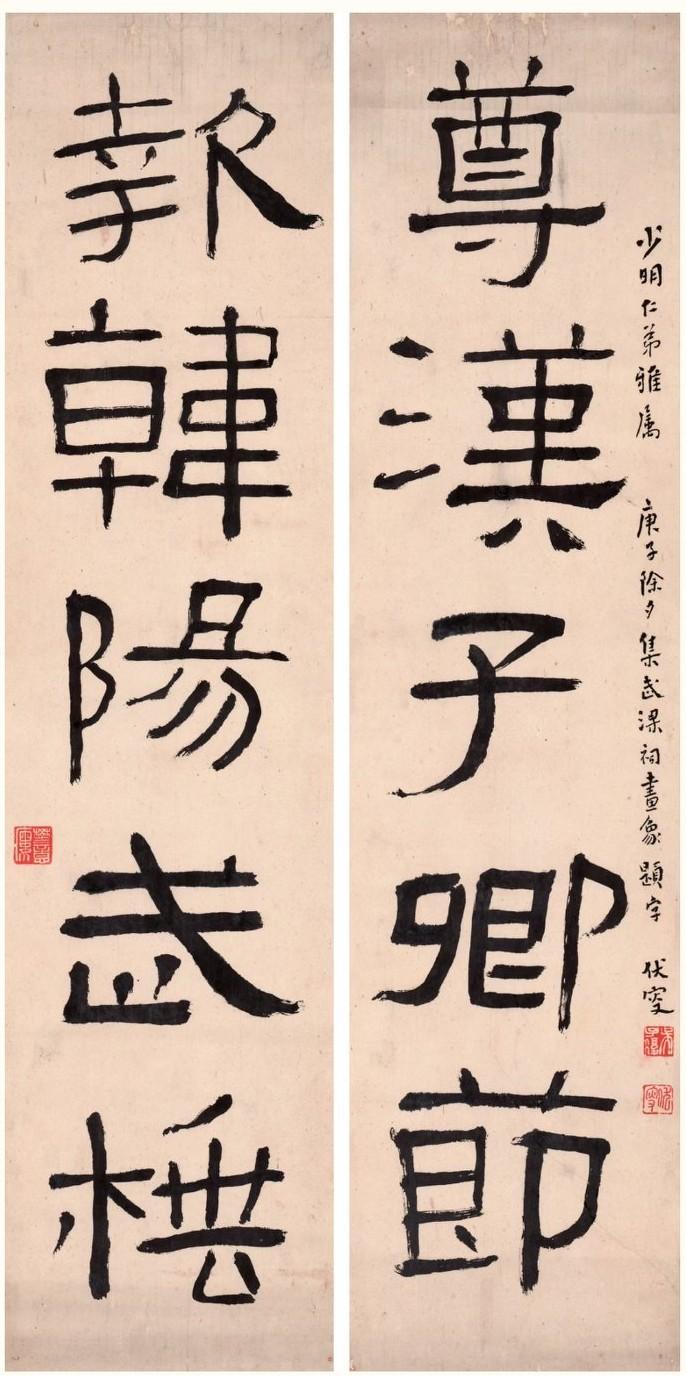 少明仁弟雅屬 庚子除夕集武梁祠畫象題字 伏叜
尊漢子卿節
報韓陽武棰